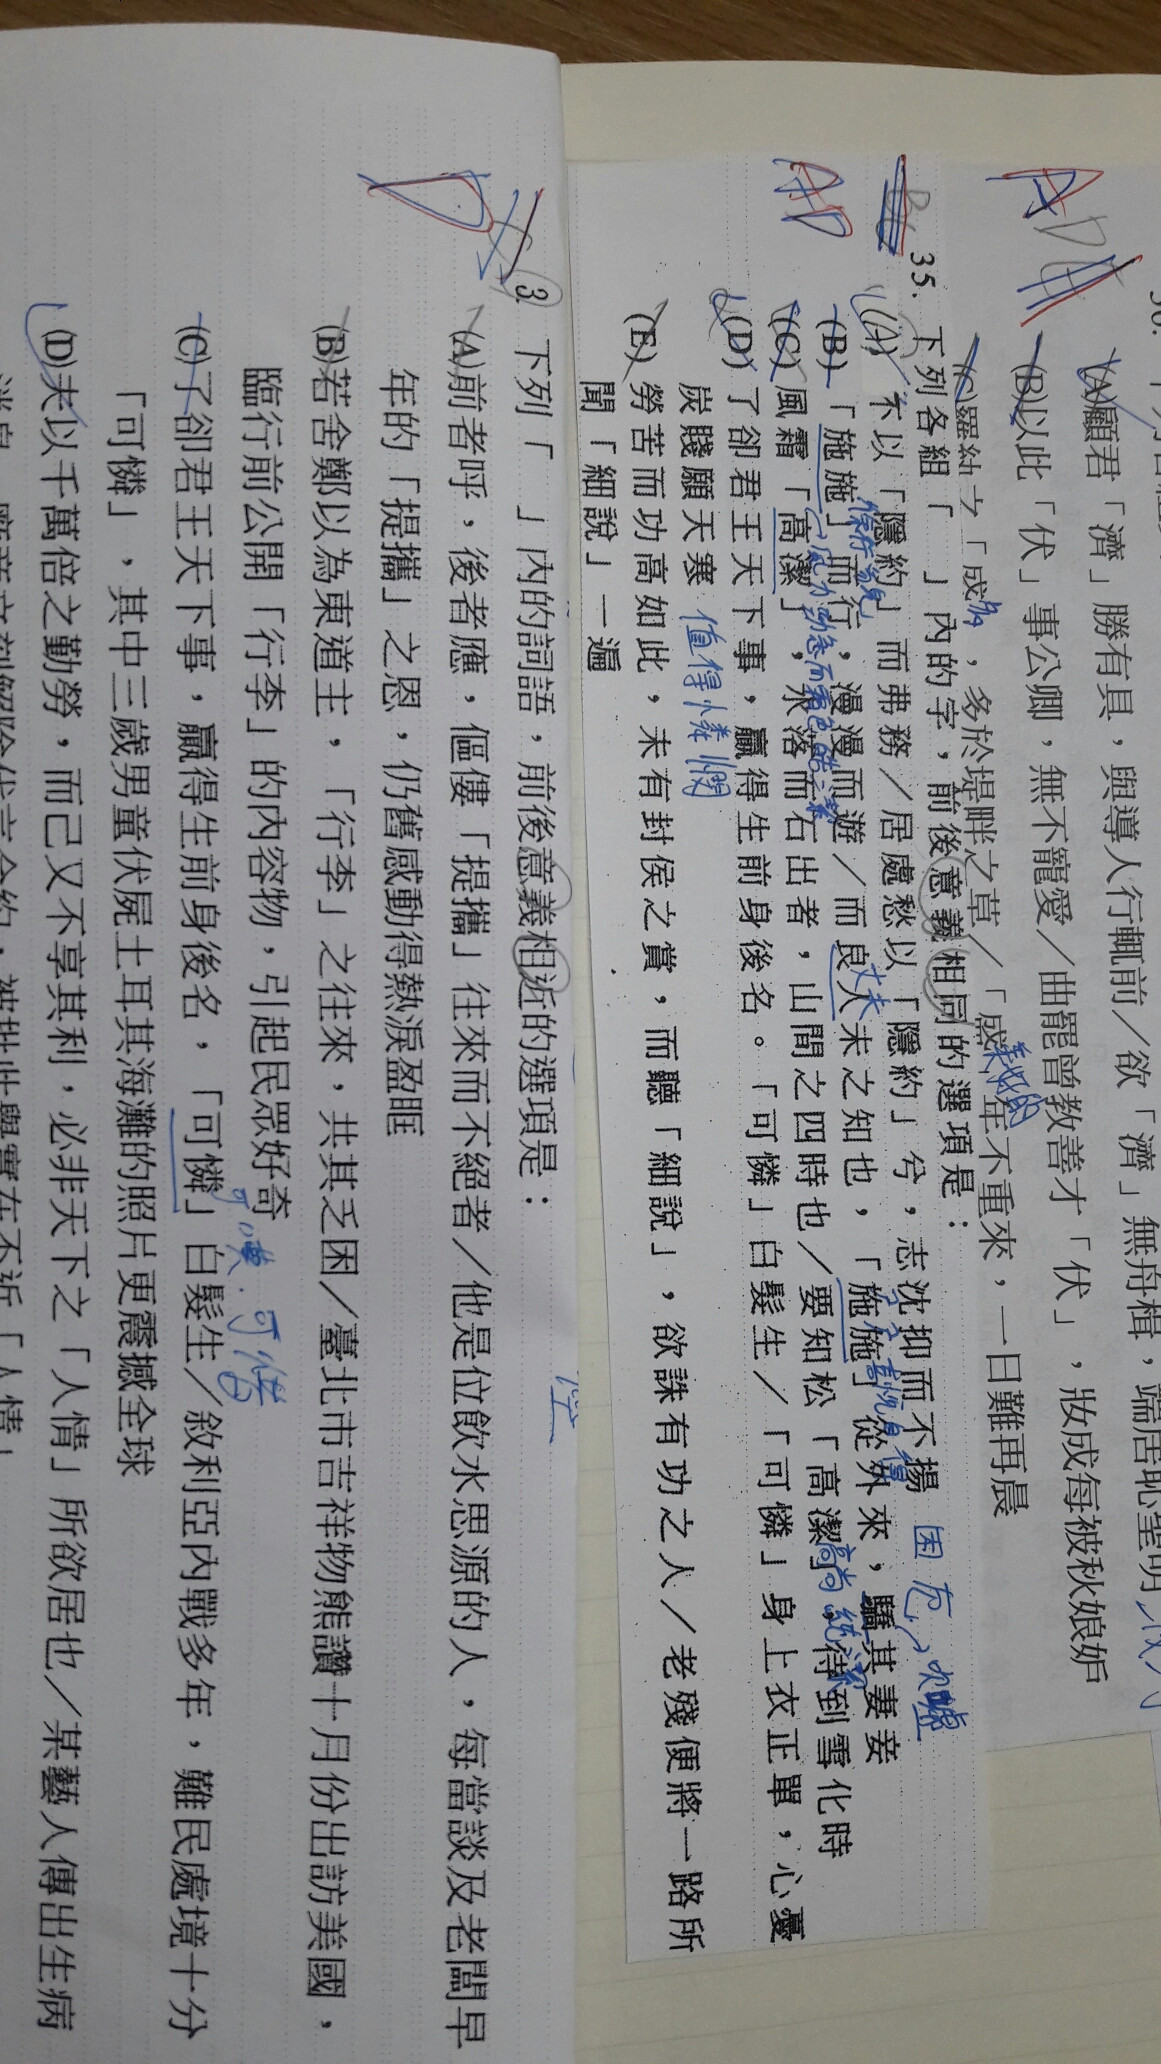 (A)願君「濟」勝有具，與導人行輒前／欲「濟」無舟楫，端居恥聖明
(B)以此「伏」事公卿，無不寵愛／曲罷曾教善才「伏」，妝成每被秋娘妒
(C)羅紈之「盛」，多於堤畔之草／「盛」年不重來，一日難再晨
35. 下列各組「　」內的字，前後意義相同的選項是：
(A)不以「隱約」而弗務／居處愁以「隱約」兮，志沈抑而不揚
困厄
(B)「施施」而行，漫漫而遊／而良人未之知也，「施施」從外來，驕其妻妾
丈夫
(C)風霜「高潔」，水落而石出者，山間之四時也／要知松「高潔」，待到雪化時
(D)了卻君王天下事，贏得生前身後名。「可憐」白髮生／「可憐」身上衣正單，心憂
炭賤願天寒
值得憐憫
(E)勞苦而功高如此，未有封侯之賞，而聽「細說」，欲誅有功之人／老殘便將一路所
聞「細說」一遍
AD
3. 下列「　」內的詞語，前後意義相近的選項是：
(A)前者呼，後者應，傴僂「提攜」往來而不絕者／他是位飲水思源的人，每當談及老闆早
年的「提攜」之恩，仍舊感動得熱淚盈眶
(B)若舍鄭以為東道主，「行李」之往來，共其乏困／臺北市吉祥物熊讚十月份出訪美國，
臨行前公開「行李」的內容物，引起民眾好奇
(C)了卻君王天下事，贏得生前身後名，「可憐」白髮生／敘利亞內戰多年，難民處境十分
可嘆．可惜
「可憐」，其中三歲男童伏屍土耳其海灘的照片更震撼全球
(D)夫以千萬倍之勤勞，而己又不享其利，必非天下之「人情」所欲居也／某藝人傳出生病
D